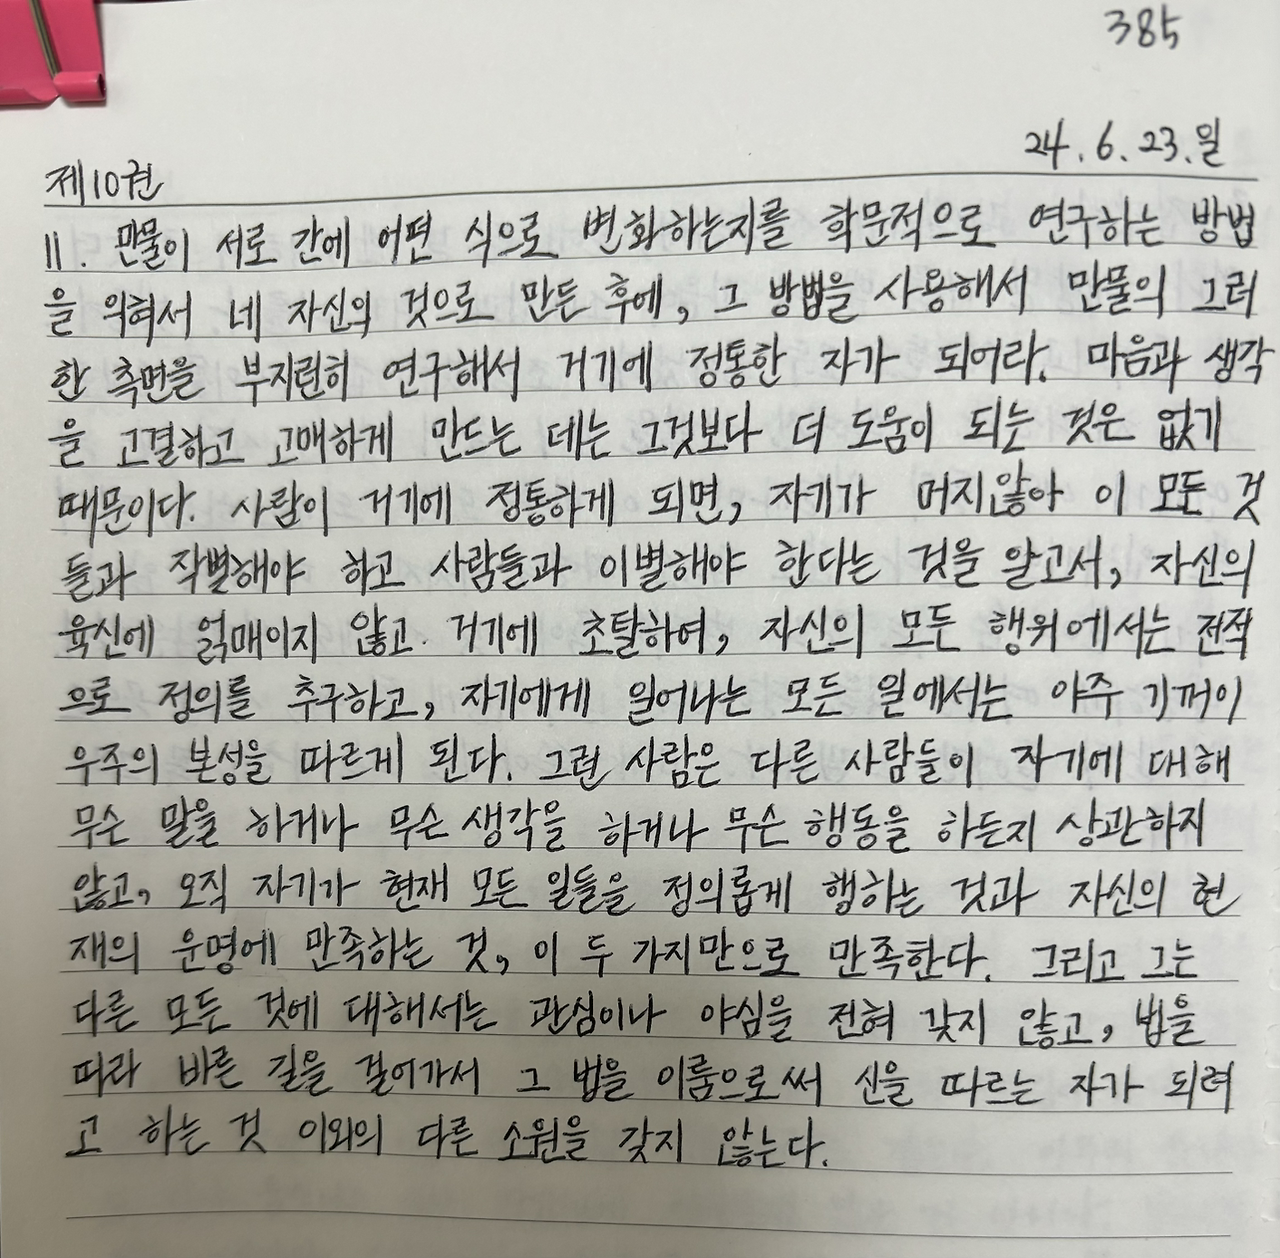 385
24. 6. 23. 일
제10권
11. 만물이 서로 간에 어떤 식으로 변화하는지를 학문적으로 연구하는 방법
을 익혀서 네 자신의 것으로 만든 후에, 그 방법을 사용해서 만물의 그러
한 측면을 부지런히 연구해서 거기에 정통한 자가 되어라. 마음과 생각
을 고결하고 고매하게 만드는 데는 그것보다 더 도움이 되는 것은 없기
때문이다. 사람이 거기에 정통하게 되면, 자기가 머지않아 이 모든 것
들과 작별해야 하고 사람들과 이별해야 한다는 것을 알고서, 자신의
육신에 얽매이지 않고 거기에 초탈하여, 자신의 모든 행위에서는 전적
으로 정의를 추구하고, 자기에게 일어나는 모든 일에서는 아주 기꺼이
우주의 본성을 따르게 된다. 그런 사람은 다른 사람들이 자기에 대해
무슨 말을 하거나 무슨 생각을 하거나 무슨 행동을 하든지 상관하지
않고, 오직 자기가 현재 모든 일들을 정의롭게 행하는 것과 자신의 현
재의 운명에 만족하는 것, 이 두 가지만으로 만족한다. 그리고 그는
다른 모든 것에 대해서는 관심이나 야심을 전혀 갖지 않고, 법을
따라 바른 길을 걸어가서 그 법을 이룸으로써 신을 따르는 자가 되려
고 하는 것 이외의 다른 소원을 갖지 않는다.